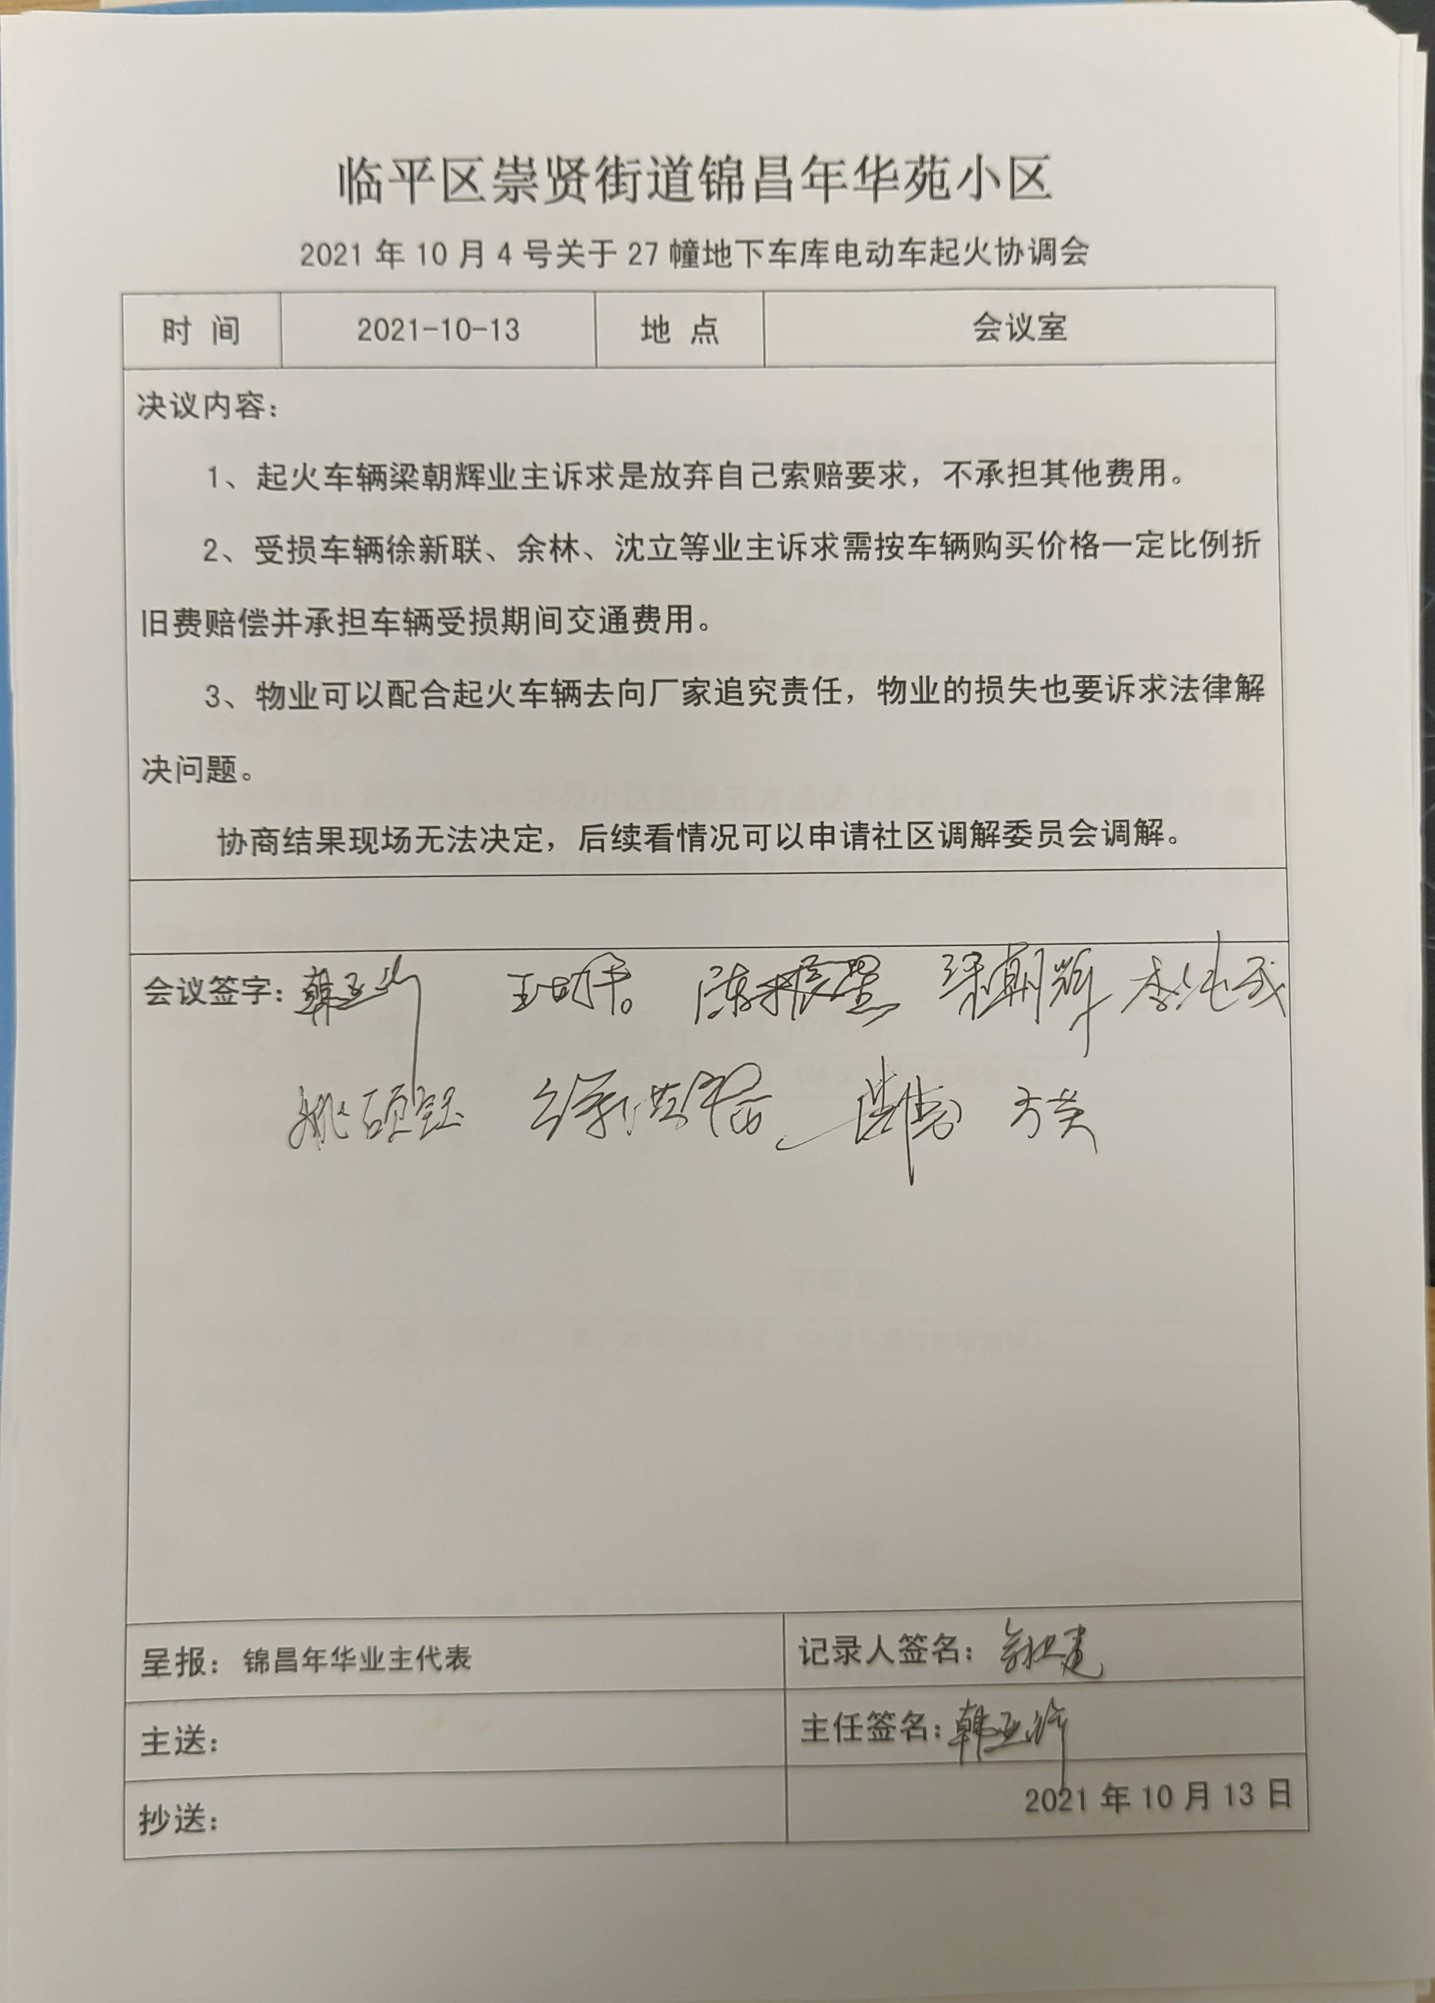 临平区崇贤街道锦昌年华苑小区
2021 年 10 月 4 号关于 27 幢地下车库电动车起火协调会
时 间 2021-10-13 地 点 会议室
决议内容：
1、起火车辆梁朝辉业主诉求是放弃自己索赔要求，不承担其他费用。
2、受损车辆徐新联、余林、沈立等业主诉求需按车辆购买价格一定比例折
旧费赔偿并承担车辆受损期间交通费用。
3、物业可以配合起火车辆去向厂家追究责任，物业的损失也要诉求法律解
决问题。
协商结果现场无法决定，后续看情况可以申请社区调解委员会调解。
会议签字： 梁朝辉
姚硕钰
呈报：锦昌年华业主代表 记录人签名：
主送： 主任签名：
抄送： 2021 年 10 月 13 日